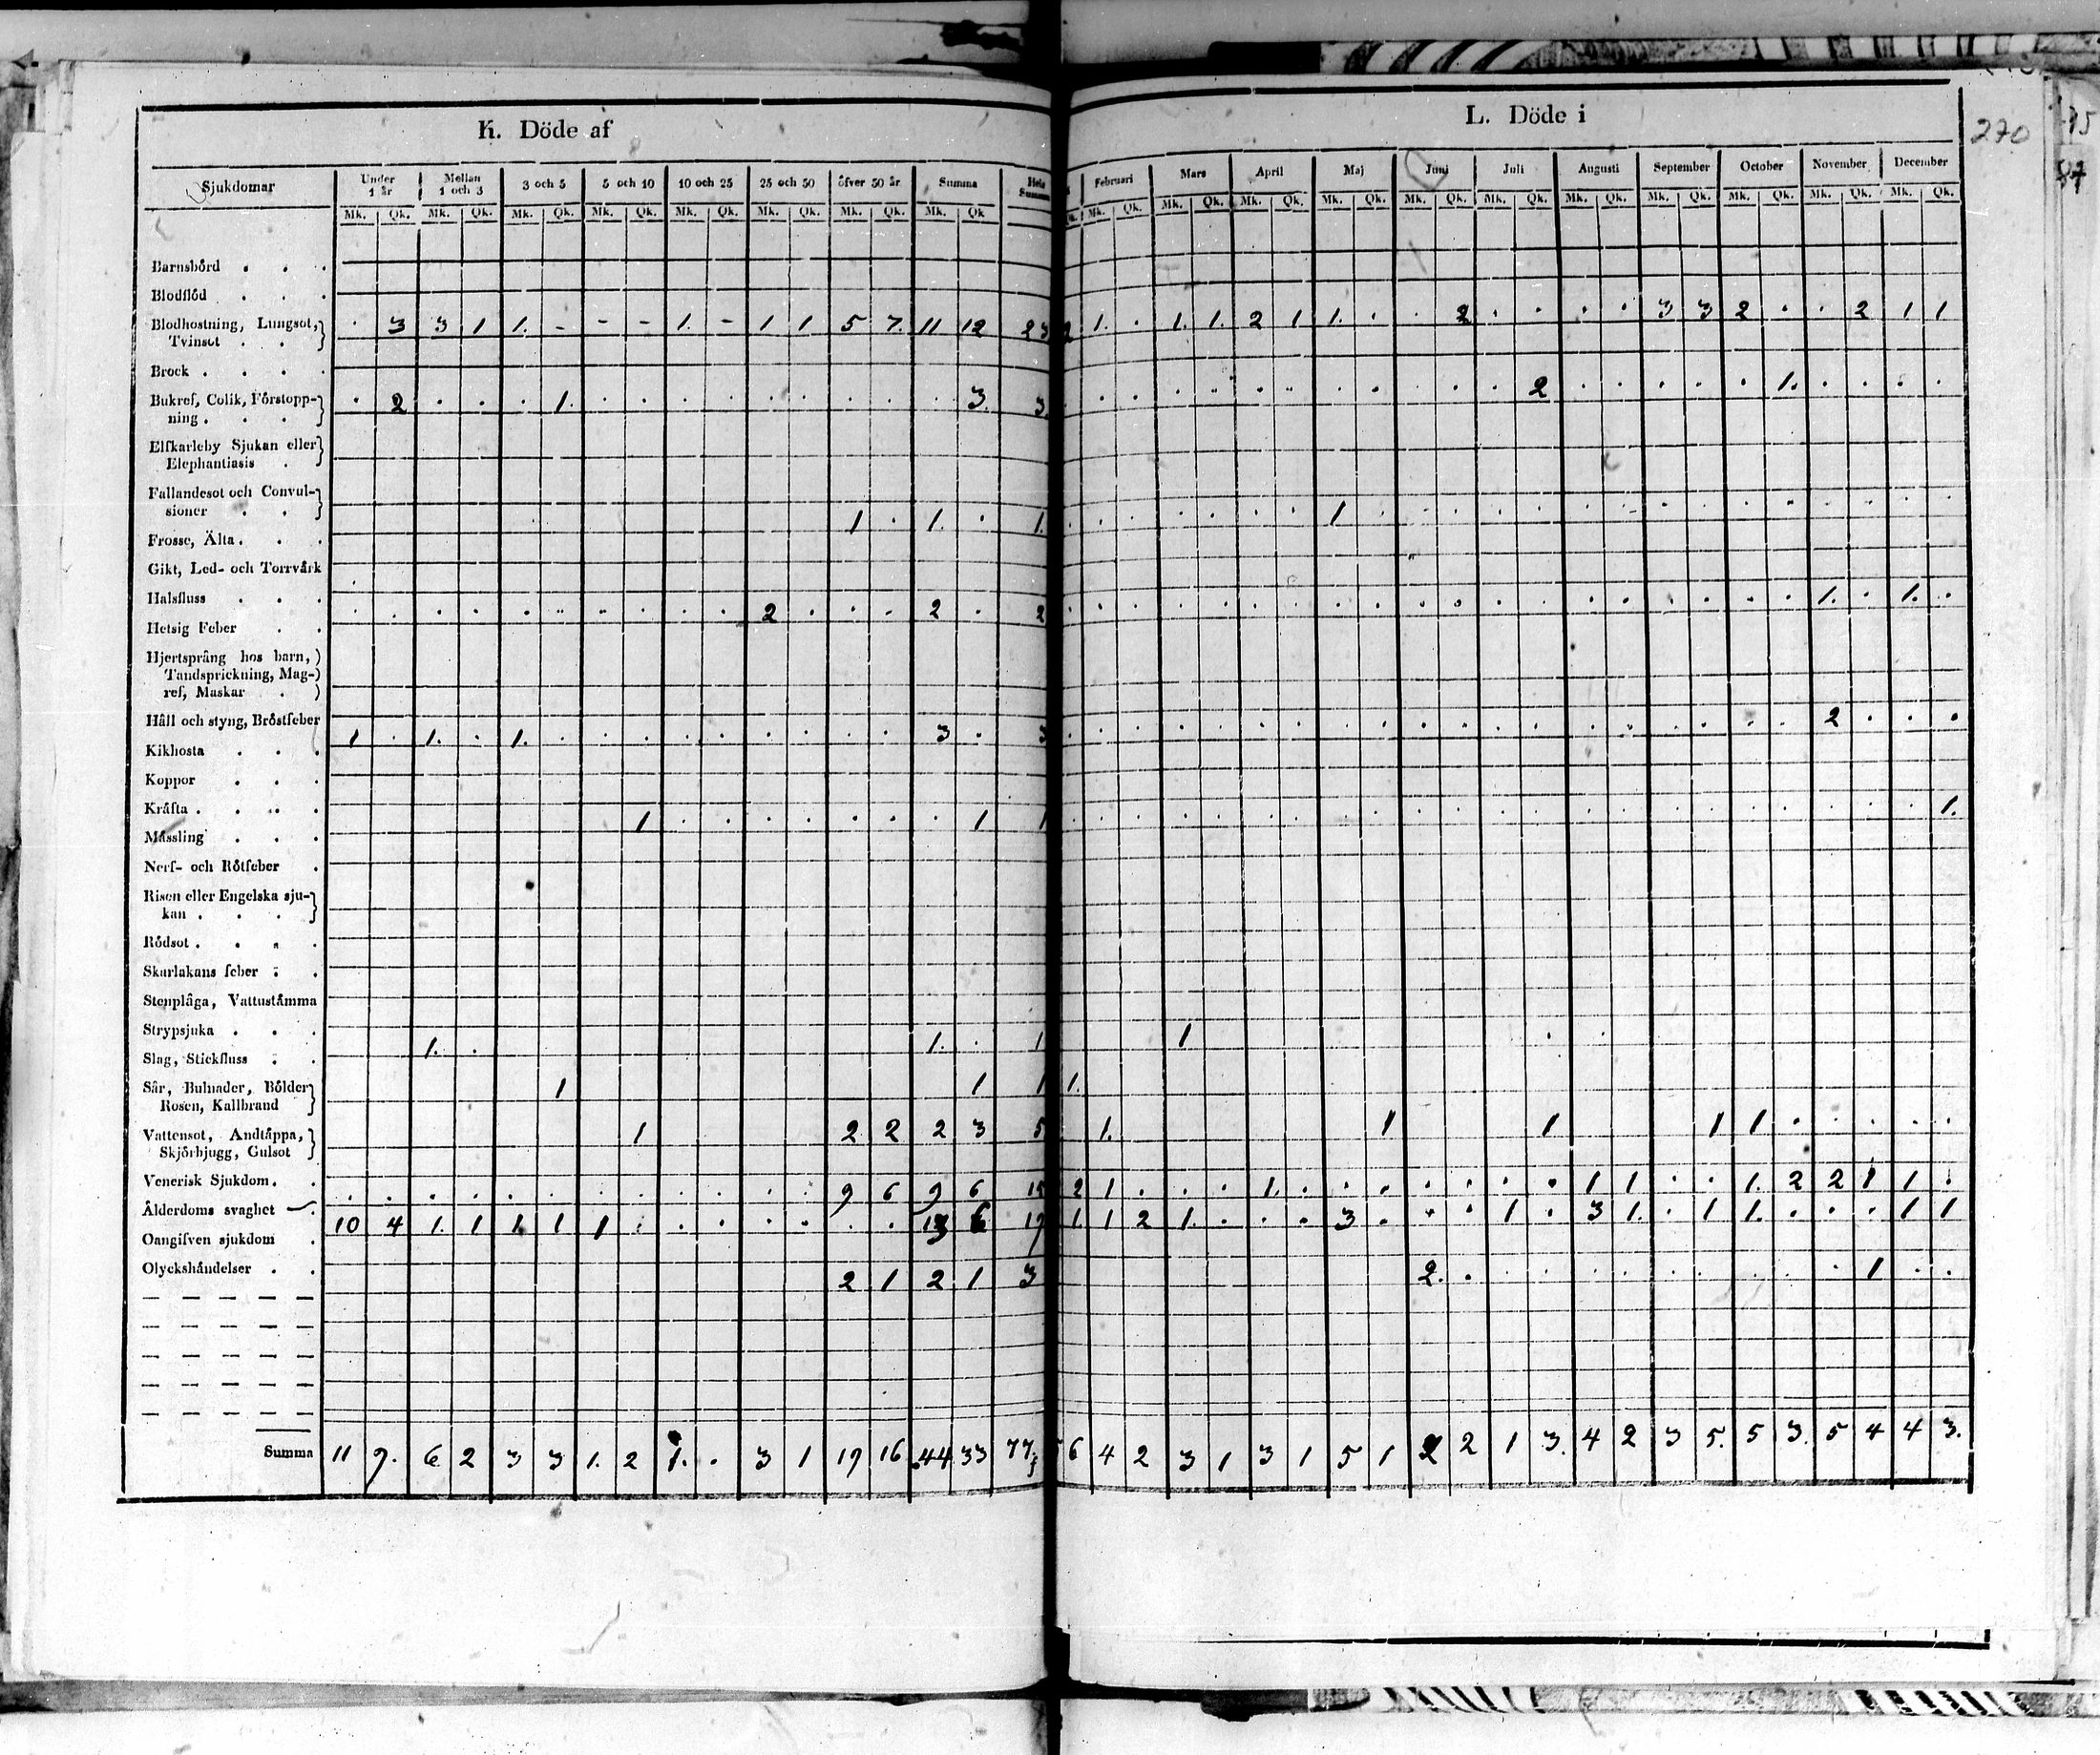 K. Döde af
L. Döde i
270
Sjukdomar | Under 1 år | Mellan 1 och 3 | 3 och 5 | 5 och 10 | 10 och 25 | 25 och 50 | öfver 50 år | Summa | Hela Summan | Februari | Mars | April | Maj | Juni | Juli | Augusti | September | October | November | December
Mk. Qk. Mk. Qk. Mk. Qk. Mk. Qk. Mk. Qk. Mk. Qk. Mk. Qk. Mk. Qk Mk. Qk. Mk. Qk. Mk. Qk. Mk. Qk. Mk. Qk. Mk. Qk. Mk. Qk. Mk. Qk. Mk. Qk. Mk. Qk. Mk. Qk.
Barnsbörd . . .
Blodflöd . . .
Blodhostning, Lungsot, . 3 3 1 1. - - - 1. - 1 1 5 7. 11 12 23 2 1. . 1. 1. 2 1 1. . . 2 . . . . 3 3 2 . . 2 1 1
Tvinsot . .
Brock . . . .
Bukref, Colik, Förstopp- . 2 . . . 1. . . . . . . . . . 3. 3. . . . . . . . . . . . . 2 . . . . . 1. . . . .
ning . . .
Elfkarleby Sjukan eller
Elephantiasis .
Fallandesot och Convul-
sioner . . 1 . 1. . 1. . . . . . . . 1 . . . . . . . . . . . . . . .
Frosse, Älta . . .
Gikt, Led- och Torrvärk
Halsfluss . . . . . . . . . . . . . 2 . . . 2 . 2 . . . . . . . . . . . . . . . . . . . 1. . 1. .
Hetsig Feber . .
Hjertsprång hos barn,
Tandsprickning, Mag-
ref, Maskar .
Håll och styng, Bröstfeber 1 . 1. . 1. . . . . . . . . . 3 . 3 . . . . . . . . . . . . . . . . . . . 2 . . .
Kikhosta . . .
Koppor . . .
Kräfta . . . . 1 . . . . . . . 1 1 . . . . . . . . . . . . . . . . . . . . . . 1.
Mässling . . .
Nerf- och Rötfeber .
Risen eller Engelska sju-
kan . . .
Rödsot . . . .
Skarlakans feber . .
Stenplåga, Vattustämma
Strypsjuka . . . 1. . 1. . 1 1
Slag, Stickfluss . .
Sår, Bulnader, Bölder 1 1 1 1.
Rosen, Kallbrand
Vattensot, Andtäppa, 1 2 2 2 3 5 1. 1 1 1 1 . . . . .
Skjörbjugg, Gulsot
Venerisk Sjukdom. . . . . . . . . . . . . . 9 6 9 6 15 2 1 . . . 1. . . . . . . . 1 1 . . 1. 2 2 1 1 .
Ålderdoms svaghet . 10 4 1. 1 1. 1 1 . . . . . . . 13 6 19 1. 1 2 1. . . . 3 . . . 1 . 3 1. . 1 1. . . . 1 1
Oangifven sjukdom .
Olyckshändelser . . 2 1 2 1 3 2. . . . . . . . . . . 1 . .
Summa 11 9. 6 2 3 3 1. 2 1. . 3 1 19 16 44 33 77 6 4 2 3 1 3 1 5 1 2 2 1 3. 4 2 3 5. 5 3. 5 4 4 3.